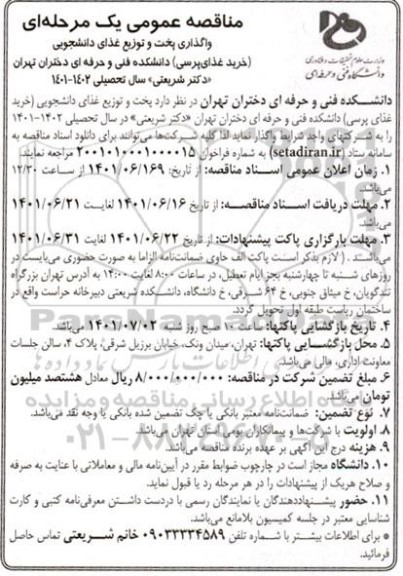 مناقصه عمومی یک مرحله‌ای
وزارت علوم تحقیقات و فناوری
دانشگاه فنی و حرفه‌ای
واگذاری پخت و توزیع غذای دانشجویی
(خرید غذای‌پرسی) دانشکده فنی و حرفه ای دختران تهران
«دکتر شریعتی» سال تحصیلی ۱۴۰۲-۱۴۰۱
دانشـــکده فنی و حرفه ای دختران تهران در نظر دارد پخت و توزیع غذای دانشجویی (خرید
غذای پرسی) دانشکده فنی و حرفه ای دختران تهران "دکتر شریعتی" در سال تحصیلی ۱۴۰۲-۱۴۰۱
را به شرکتهای واجد شرایط واگذار نماید لذا کلیه شرکت‌ها می‌توانند برای دانلود اسناد مناقصه به
سامانه ستاد (setadiran.ir) به شماره فراخوان ۲۰۰۱۰۱۰۰۰۱۰۰۰۰۱۵ مراجعه نمایند.
۱. زمان اعلان عمومی اسـناد مناقصه: از تاریخ: ۱۴۰۱/۰۶/۱۶۹ از ساعت ۱۲/۳۰
می‌باشد.
۲. مهلت دریافت اسـناد مناقصـــه: از تاریخ ۱۴۰۱/۰۶/۱۶ لغایـــت ۱۴۰۱/۰۶/۲۱
می‌باشد.
۳. مهلت بارگزاری پاکت پیشنهادات: از تاریخ ۱۴۰۱/۰۶/۲۲ لغایت ۱۴۰۱/۰۶/۳۱
می‌باشند . ( لازم بذکر است پاکت الف حاوی ضمانت‌نامه الزاما به صورت حضوری می‌بایست در
روزهای شنبه تا چهارشنبه بجز ایام تعطیل، در ساعات ۸:۰۰ لغایت ۱۴:۰۰ به آدرس تهران بزرگراه
تندگویان، خ میثاق جنوبی، خ ۶۴ شرقی، خ دانشگاه، دانشکده شریعتی دبیرخانه حراست واقع در
ساختمان ریاست طبقه اول تحویل گردد.
۴. تاریخ بازگشایی پاکتها: ساعت ۱۰ صبح روز شنبه ۱۴۰۱/۰۷/۰۲ می‌باشد.
۵. محل بازگشـــایی پاکتها: تهران، میدان ونک، خیابان برزیل شرقی، پلاک ۴، سالن جلسات
معاونت اداری، مالی می‌باشد.
۶. مبلغ تضمین شرکت در مناقصه: ۸/۰۰۰/۰۰۰/۰۰۰ ریال معادل هشتصد میلیون
تومان می‌باشد.
۷. نوع تضمین: ضمانت‌نامه معتبر بانکی یا چک تضمین شده بانکی یا وجه نقد می‌باشد.
۸. اولویت با شرکت‌ها و پیمانکاران بومی استان تهران می‌باشد.
۹. هزینه درج این آگهی بر عهده برنده مناقصه می‌باشد.
۱۰. دانشگاه مجاز است در چارچوب ضوابط مقرر در آیین‌نامه مالی و معاملاتی با عنایت به صرفه
و صلاح هریک از پیشنهادات را در هر مرحله رد یا قبول نماید.
۱۱. حضور پیشنهاددهندگان یا نمایندگان رسمی با دردست داشتن معرفی‌نامه کتبی و کارت
شناسایی معتبر در جلسه کمیسیون بلامانع می‌باشد.
* برای اطلاعات بیشتر با شماره تلفن ۰۹۰۳۳۳۳۴۵۸۹ خانم شـــریعتی تماس حاصل
فرمائید.
ParsNamadData
۰۲۱-۸۸۳۴۹۶۷۰-۵